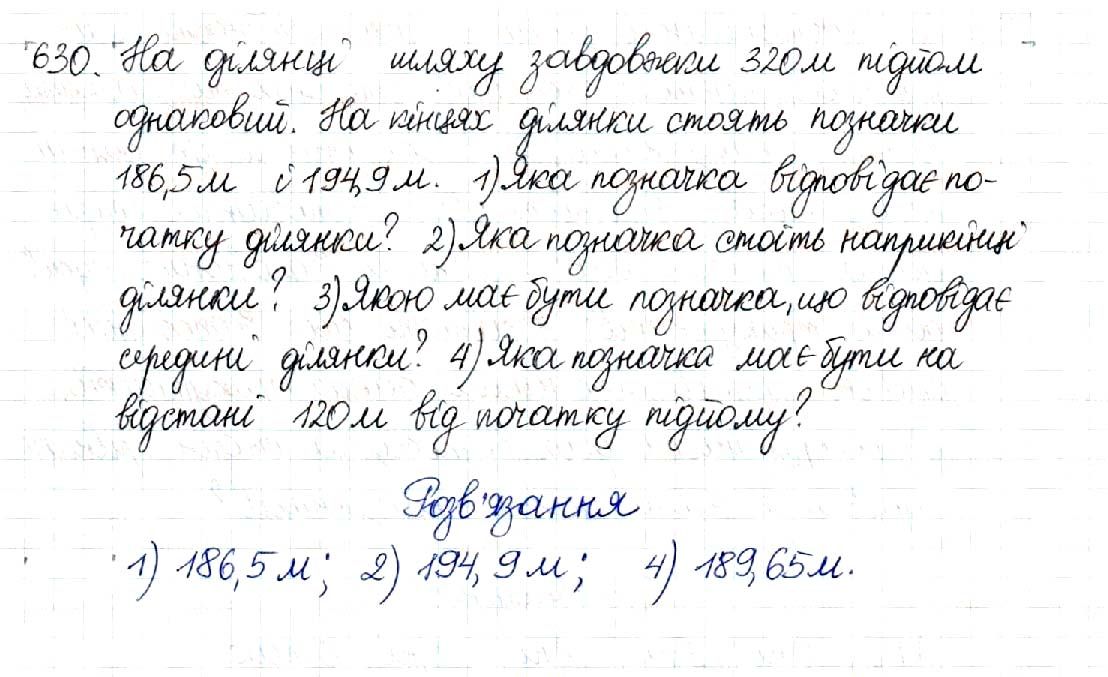 630. На ділянці шляху завдовжки 320м підйом
однаковий. На кінцях ділянки стоять позначки
186,5м і 194,9м. 1) Яка позначка відповідає по-
чатку ділянки? 2) Яка позначка стоїть наприкінці
ділянки? 3) Якою має бути позначка, що відповідає
середині ділянки? 4) Яка позначка має бути на
відстані 120м від початку підйому?
Розв'язання
1) 186,5м; 2) 194,9м; 4) 189,65м.